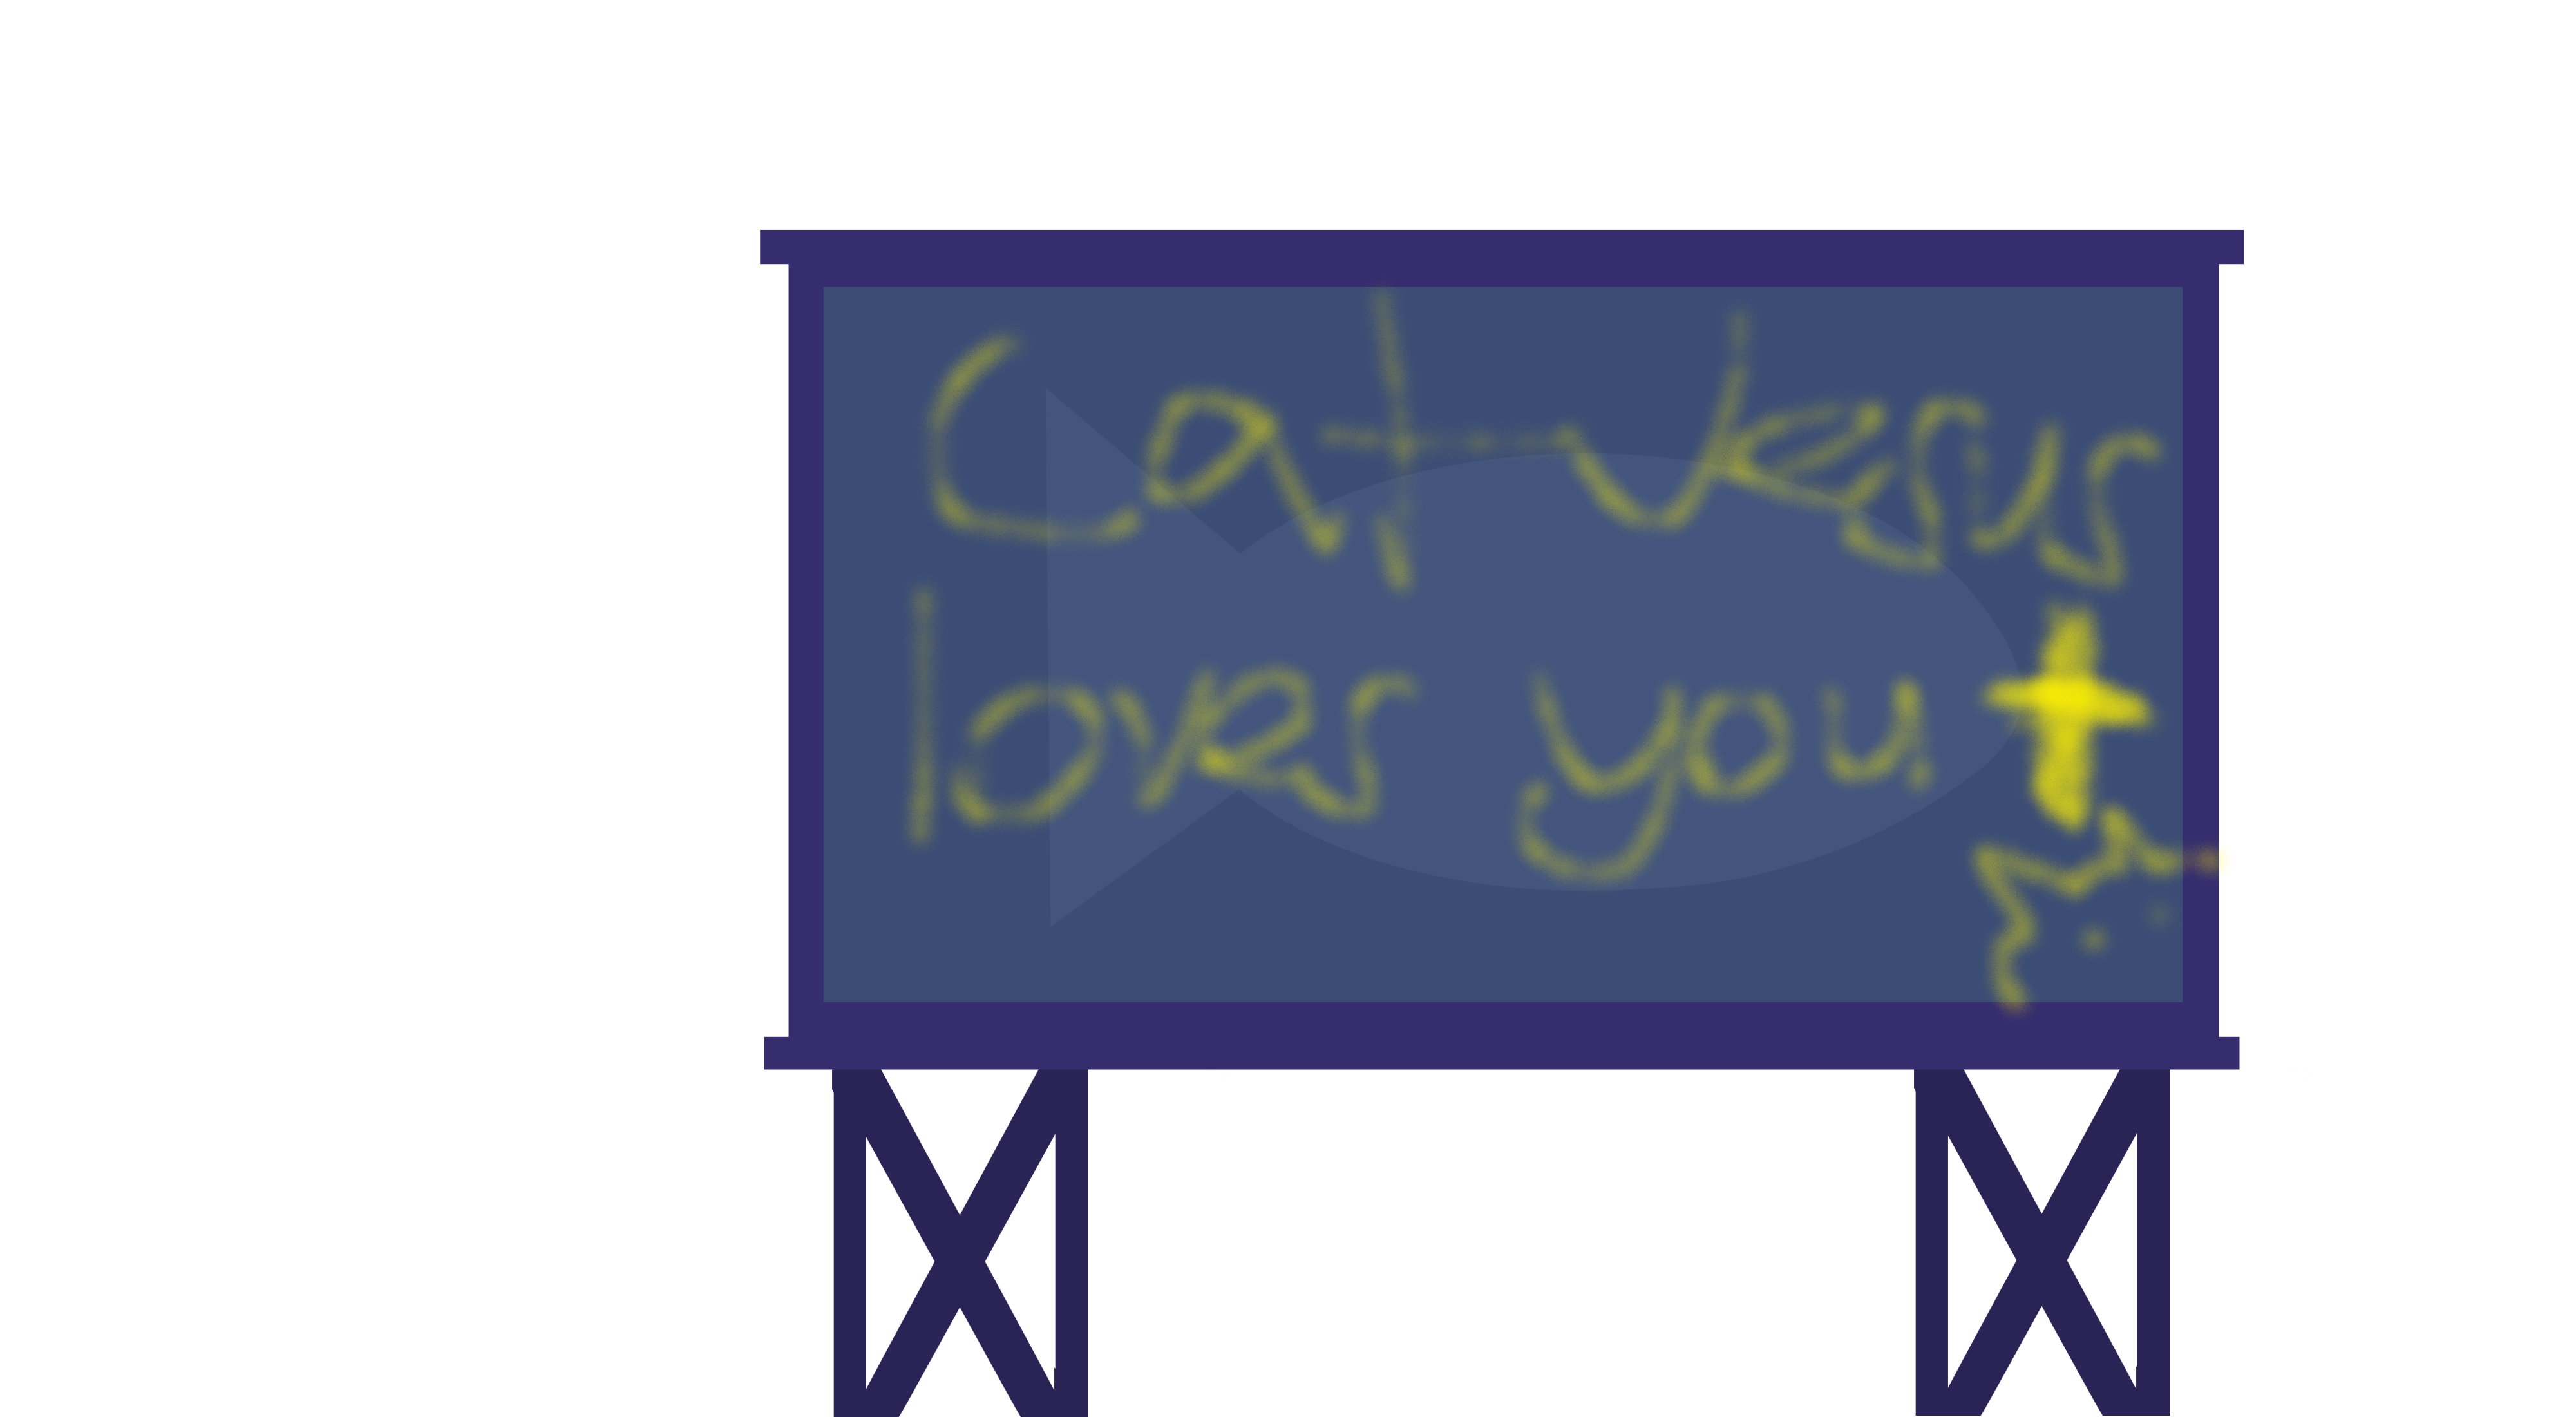 Cat Jesus
loves you